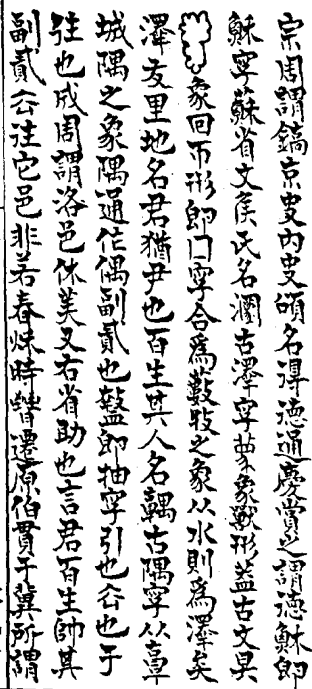 宗周謂鎬京史内史頌名淂徳通慶賞之謂徳穌即
穌字蘇省文矦氏名瀾古澤字㝱象獸形葢古文㒷
象囘帀形即囗字合爲藪牧之象从水則爲澤矣
澤友里地名君猶尹也百生其人名䣓古隅字从𩫖
城隅之象隅通作偶副貳也盩即抽字引也厷也于
徃也成周謂洛邑休美又右省助也言君百生帥其
副貳厷往它邑非若春烌時朁遷原伯貫于冀所謂